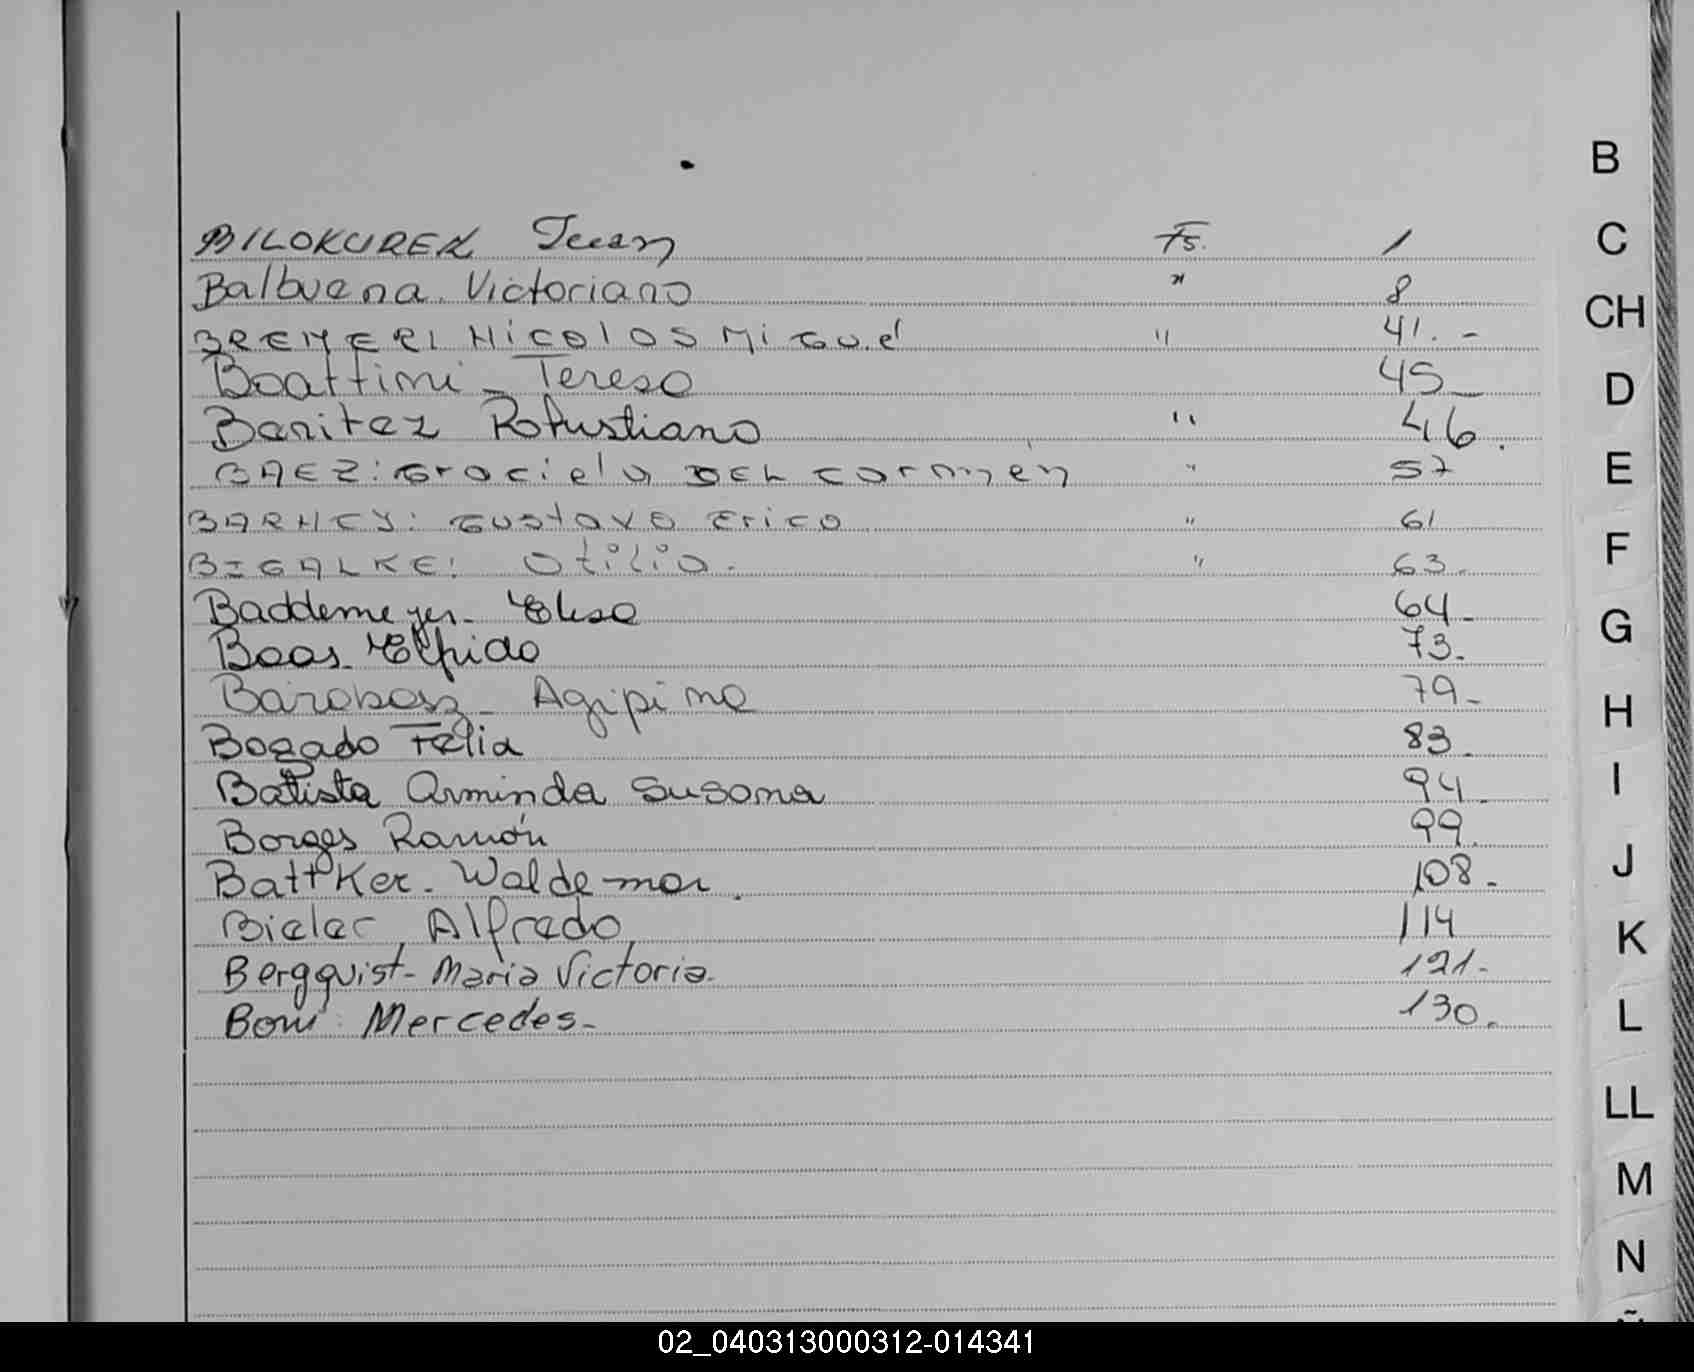 B
C
CH
D
E
F
G
H
I
J
K
L
LL
M
N
Ñ
BILOKUREK Juan Fs. 1
Balbuena. Victoriano " 8
BREMERI NicolOS Migue " 41.-
Boattini - Teresa 45_
Benitez Robustiano " 46.
BAEZ: Graciela DEL Carmen " 57
BARNEY: Gustavo Erico " 61
BIGALKE: Otilia. " 63.
Baddemeyer - Elisa 64-
Boas Elpido 73.
Agipina 79-
Bogado Felia 83.
Batista Arminda Susana 94-
Borges Ramón 99.
Waldemar. 108.
Bieler, Alfredo, 114
Bergquist - Maria Victoria. 121-
Boni Mercedes - 130.
02_040313000312-014341